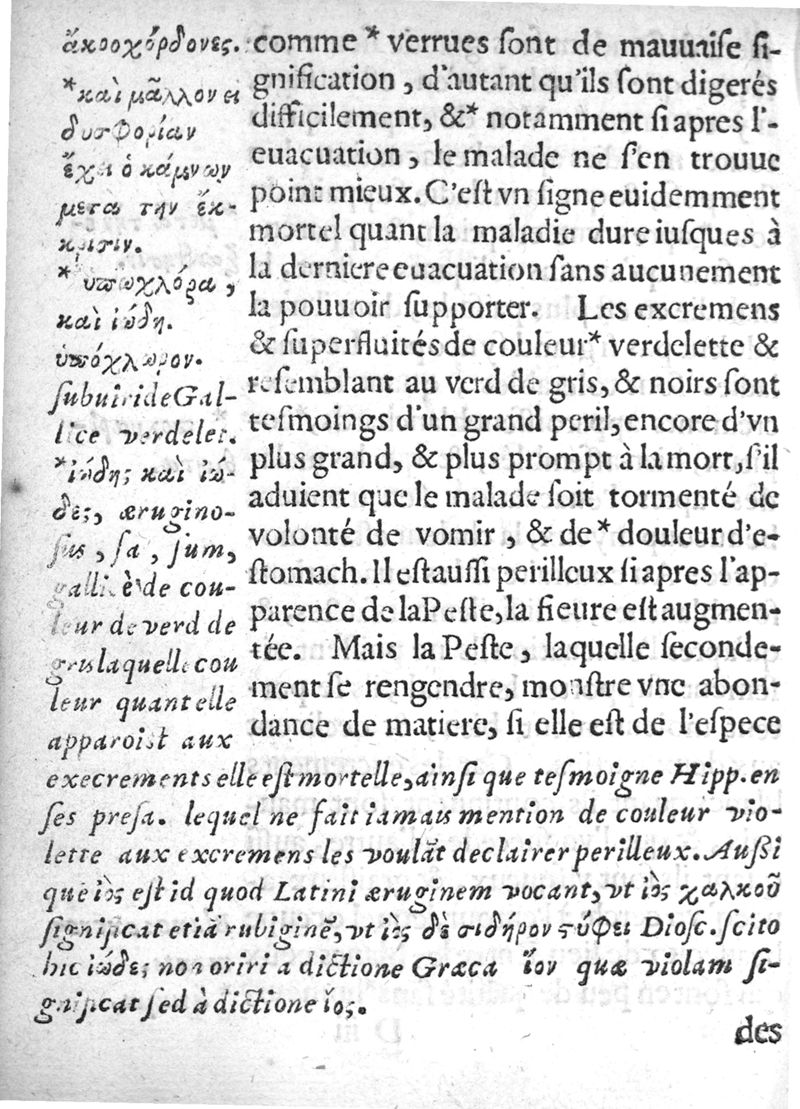 comme * verrues sont de mauuaise si-
gnification, d'autant qu'ils sont digerés
difficilement, &* notamment si apres l'-
euacuation, le malade ne s'en trouue
point mieux. C'est vn signe euidemment
mortel quant la maladie dure iusques à
la derniere euacuation sans aucunement
la pouuoir supporter. Les excremens
& superfluités de couleur* verdelette &
resemblant au verd de gris, & noirs sont
tesmoings d'un grand peril, encore d'vn
plus grand, & plus prompt à la mort, s'il
aduient que le malade soit tormenté de
volonté de vomir, & de* douleur d'e-
stomach. Il est aussi perilleux si apres l'ap-
parence de la Peste, la fieure est augmen-
tée. Mais la Peste, laquelle seconde-
ment se rengendre, monstre vne abon-
dance de matiere, si elle est de l'espece
ἀκροχόρδονες.
*καὶ μᾶλλον ει
δυσφορίαν
ἔχει ὁ κάμνων
μετα την ἔκ-
κρισιν.
* ὑπωχλόρα,
καὶ ἰώδη.
ὑπόχλωρον.
subuiride Gal-
lice verdelet.
*ἰώδης καὶ ἰώ-
δες, ærugino-
sus, sa, sum,
gallicè de cou-
leur de verd de
gris laquelle cou
leur quant elle
apparoist aux
execrements elle est mortelle, ainsi que tesmoigne Hipp. en
ses presa. lequel ne fait iamais mention de couleur vio-
lette aux excremens les voulãt declairer perilleux. Aussi
que ἰὸς est id quod Latini æruginem vocant, vt ἰὸς χαλκοῦ
significat etiã rubiginẽ, vt ἰὸς δὲ σιδήρου στύφει Diosc. scito
hic ἰώδες non oriri a dictione Græca ἴον quæ violam si-
gnificat sed à dictione ἰος.
des